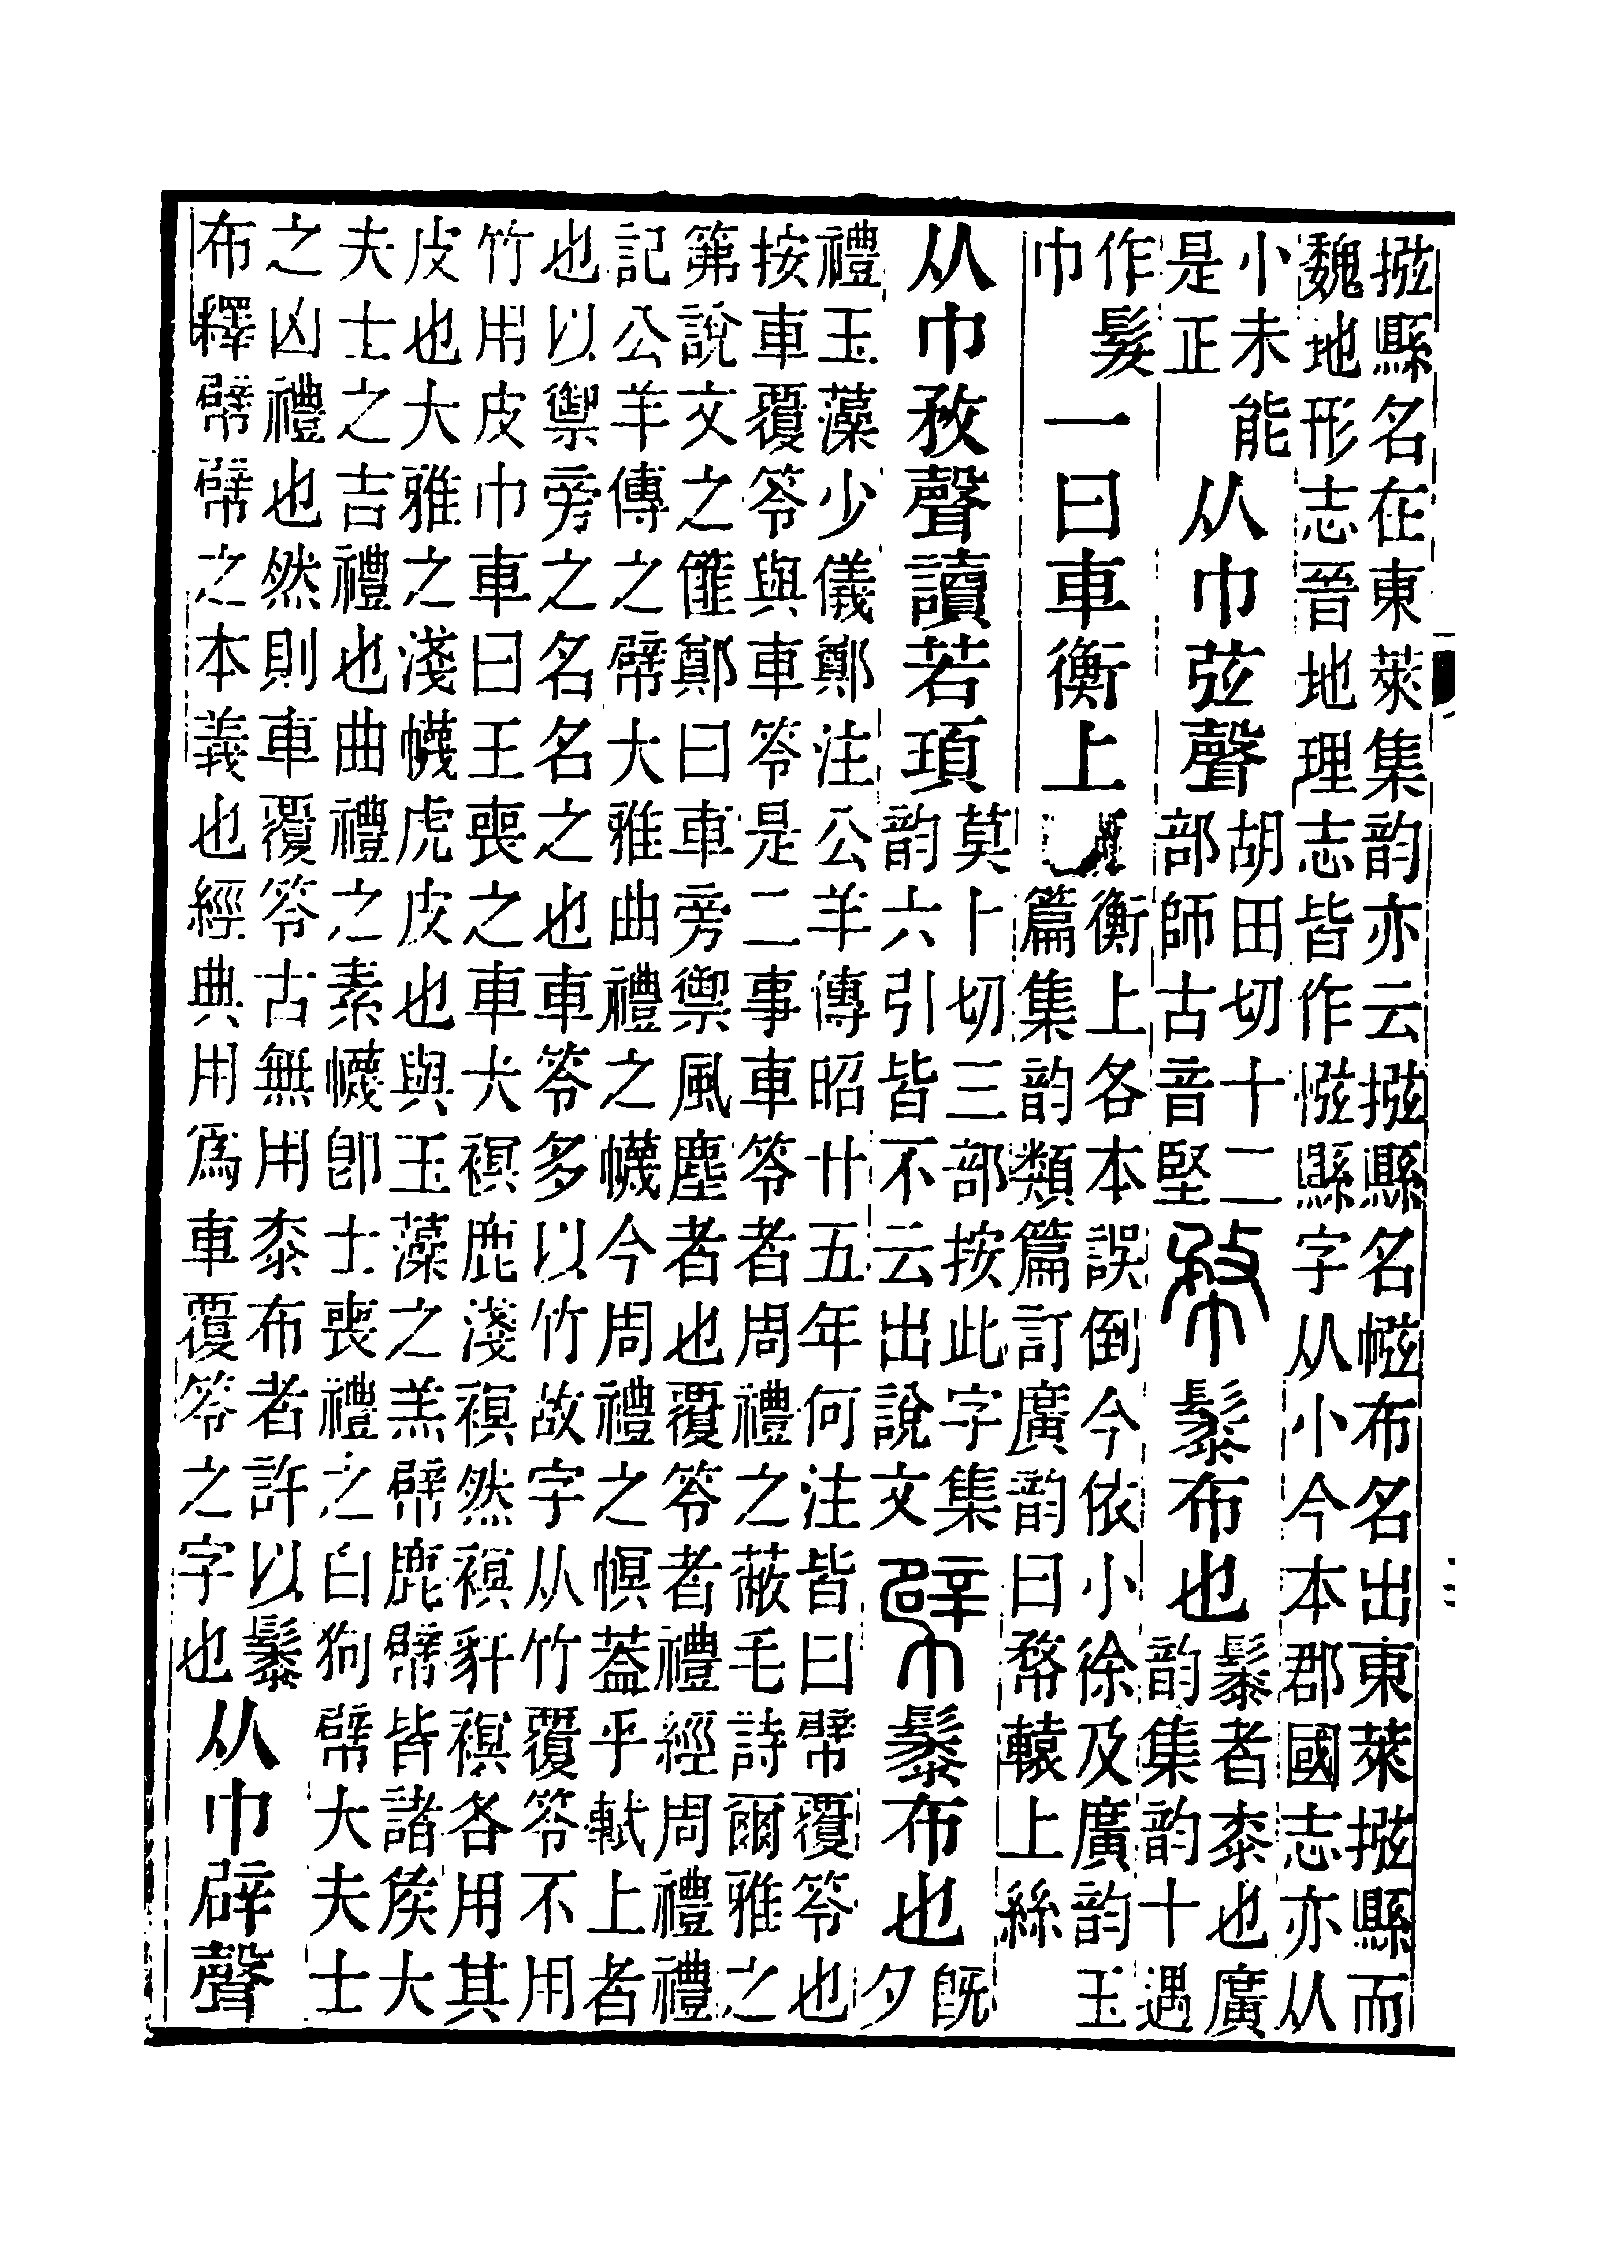 㡉縣名在東萊集韵亦云㡉縣名㡉布名出東萊㡉縣而
魏地形志晉地理志皆作惤縣字从小今本郡國志亦从
小未能
是正
从巾弦聲
胡田切十二
部師古音堅
㡔䰍布也
䰍者桼也廣
韵集韵十遇
作髮
巾
一曰車衡上
衡上各本誤倒今依小徐及廣韵玉
篇集韵類篇訂廣韵曰㡔轅上絲
从巾敄聲讀若頊
莫卜切三部按此字集
韵六引皆不云出說文
幦䰍布也
旣
夕
禮玉藻少儀鄭注公羊傳昭廿五年何注皆曰幦覆笭也
按車覆笭與車笭是二事車笭者周禮之蔽毛詩爾雅之
第說文之䉬鄭曰車旁禦風塵者也覆笭者禮經周禮禮
記公羊傳之幦大雅曲禮之幭今周禮之幎葢乎軾上者
也以禦旁之名名之也車笭多以竹故字从竹覆笭不用
竹用皮巾車曰王喪之車犬𧜀鹿淺𧜀然𧜀豻𧜀各用其
皮也大雅之淺幭虎皮也與玉藻之羔幦鹿幦皆諸矦大
夫士之吉禮也曲禮之素幭卽士喪禮之白狗幦大夫士
之凶禮也然則車覆笭古無用桼布者許以䰍
布釋幦幦之本義也經典用爲車覆笭之字也
从巾辟聲